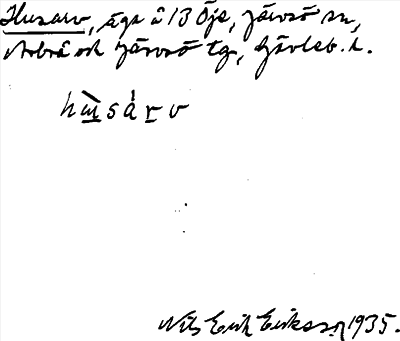 Husarv, äga å 13 Öje, Järvsö sn,
Arbrå och Järvsö tg, Gävleb. l.
hùsárv
Nils Erik Eriksson 1935.